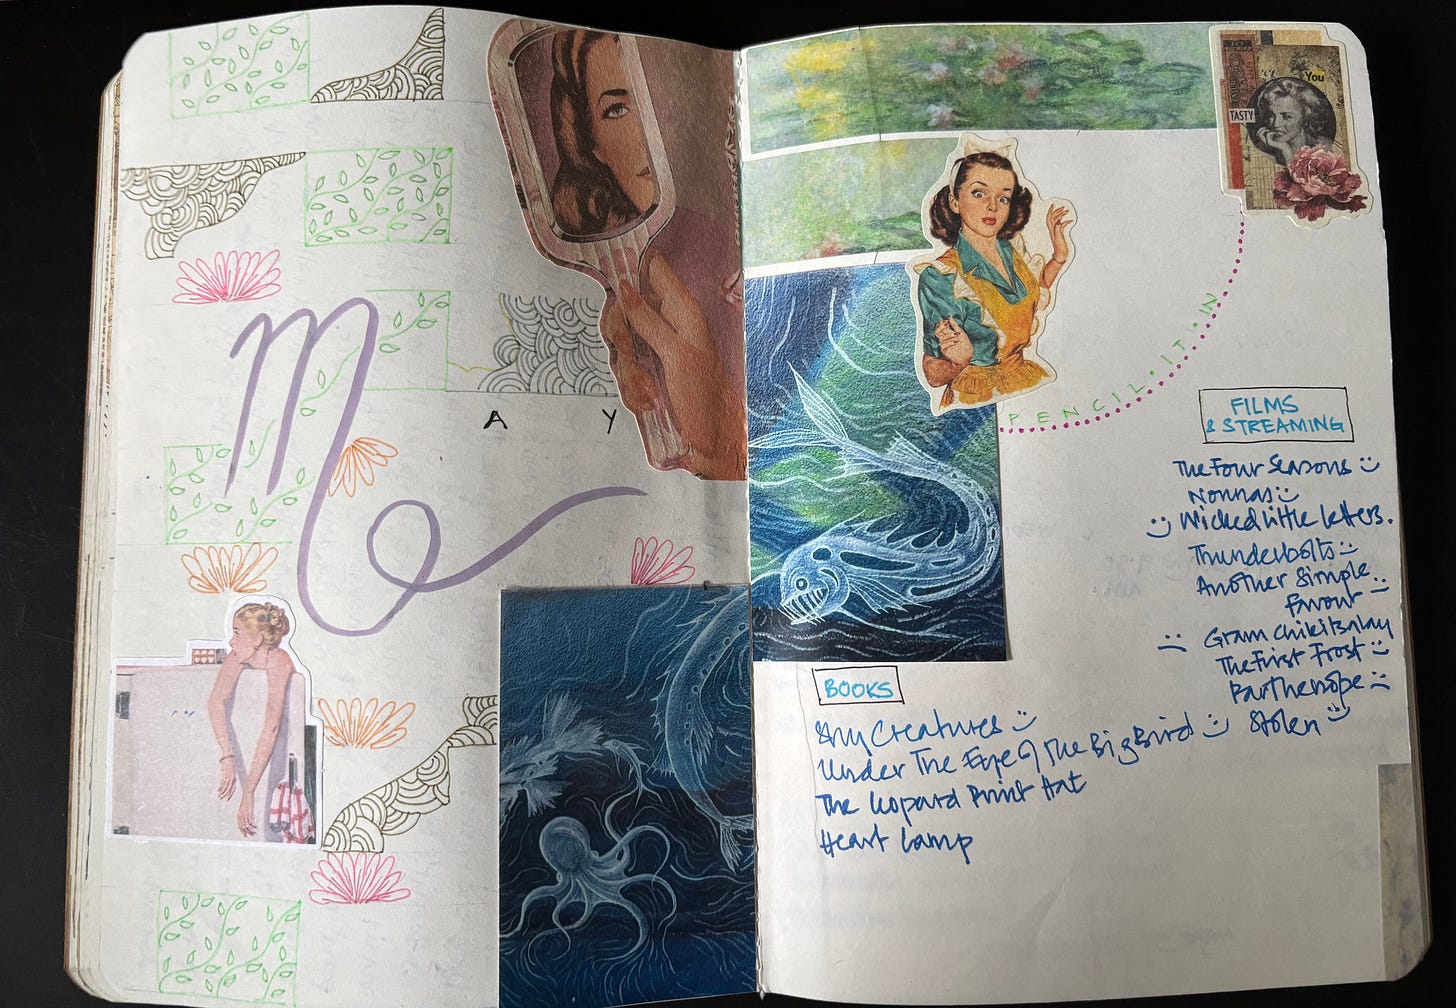 M
A Y
You
TASTY
PENCIL·IT·IN
FILMS
& STREAMING
The Four Seasons
Nonnas
Wicked Little Letters.
Thunderbolts
Another Simple
Favour
Gram Chikitsalay
The First Frost
Parthenope
Stolen
BOOKS
Shy Creatures
Under The Eye of The Big Bird
The Leopard Print Hat
Heart Lamp